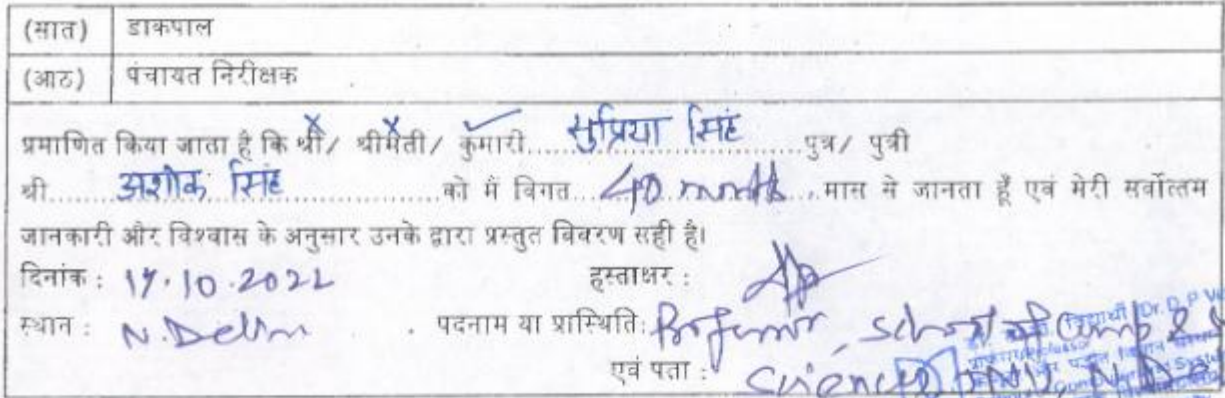 (सात) डाकपाल
(आठ) पंचायत निरीक्षक
प्रमाणित किया जाता है कि श्री/ श्रीमती/ कुमारी.....सुप्रिया सिंह.....पुत्र/ पुत्री
श्री.....अशोक सिंह.....को मैं विगत...40 months...मास से जानता हूँ एवं मेरी सर्वोत्तम
जानकारी और विश्वास के अनुसार उनके द्वारा प्रस्तुत विवरण सही है।
दिनांक : 17.10.2022 हस्ताक्षर :
स्थान : N. Delhi पदनाम या प्रास्थिति: Professor, School of Comp &
एवं पता : Sciences, JNU, N.